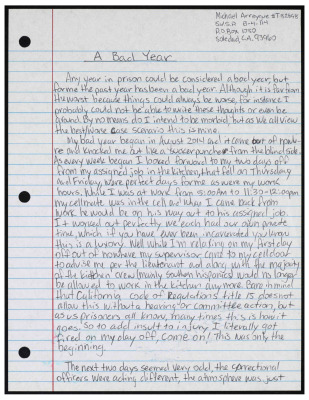 Michael Arroyave
P.O. Box 1050
Soledad, CA. 93960
A Bad Year
Any year in prison could be considered a bad year, but
for me the past year has been a bad year. Although it is far from
the worst because things could always be worse, for instance I
probably could not be able to write these thoughts or even be
around. By no means do I intend to be morbid, but as we all view
the best/worse case scenario this is mine.
My bad year began in August 2014 and it came out of nowhe-
re and knocked me out like a sucker puncher from the blind side.
As every week began I looked forward to my two days off
from my assigned job in the kitchen, that fell on Thursday
and Friday. Were perfect days for me as were my work
hours. While I was at work from 5:00 AM to 11:30-12:00pm
my cellmate was in the cell and when I came back from
work he would be on his way out to his assigned job.
It worked out perfectly we each had our own private
time, which if you have ever been incarcerated you know
this is a luxury. Well while I'm relaxing on my first day
off out of nowhere my supervisor came to my cell door
to advise me per the lieutenant and along with the majority
of the kitchen crew (mainly southern hispanics) would no longer
be allowed to work in the kitchen any more. Bare in mind
that California Code of Regulations title 15 does not
allow this without a hearing or committee action, but
as us prisoners all know, many times this is how it
goes. So to add insult to injury I literally got
fired on my day off, come on! This was only the
beginning.
The next two days seemed very odd, the correctional
officers were acting different, the atmosphere was just